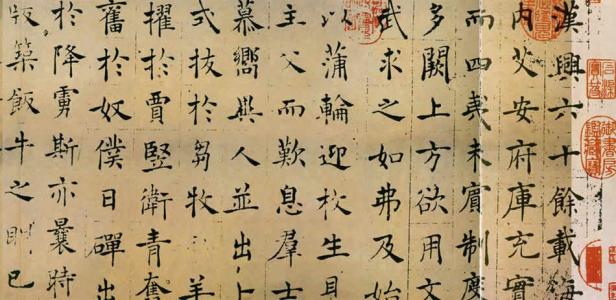 漢興六十餘載海
內艾安府庫充實
而四夷未賓制度
多闕上方欲用文
武求之如弗及始
以蒲輪迎枚生見
主父而歎息羣士
慕嚮異人並出卜
式拔於芻牧羊
擢於賈豎衛青奮
奮於奴僕日磾出
於降虜斯亦曩時
版築飯牛之朋已